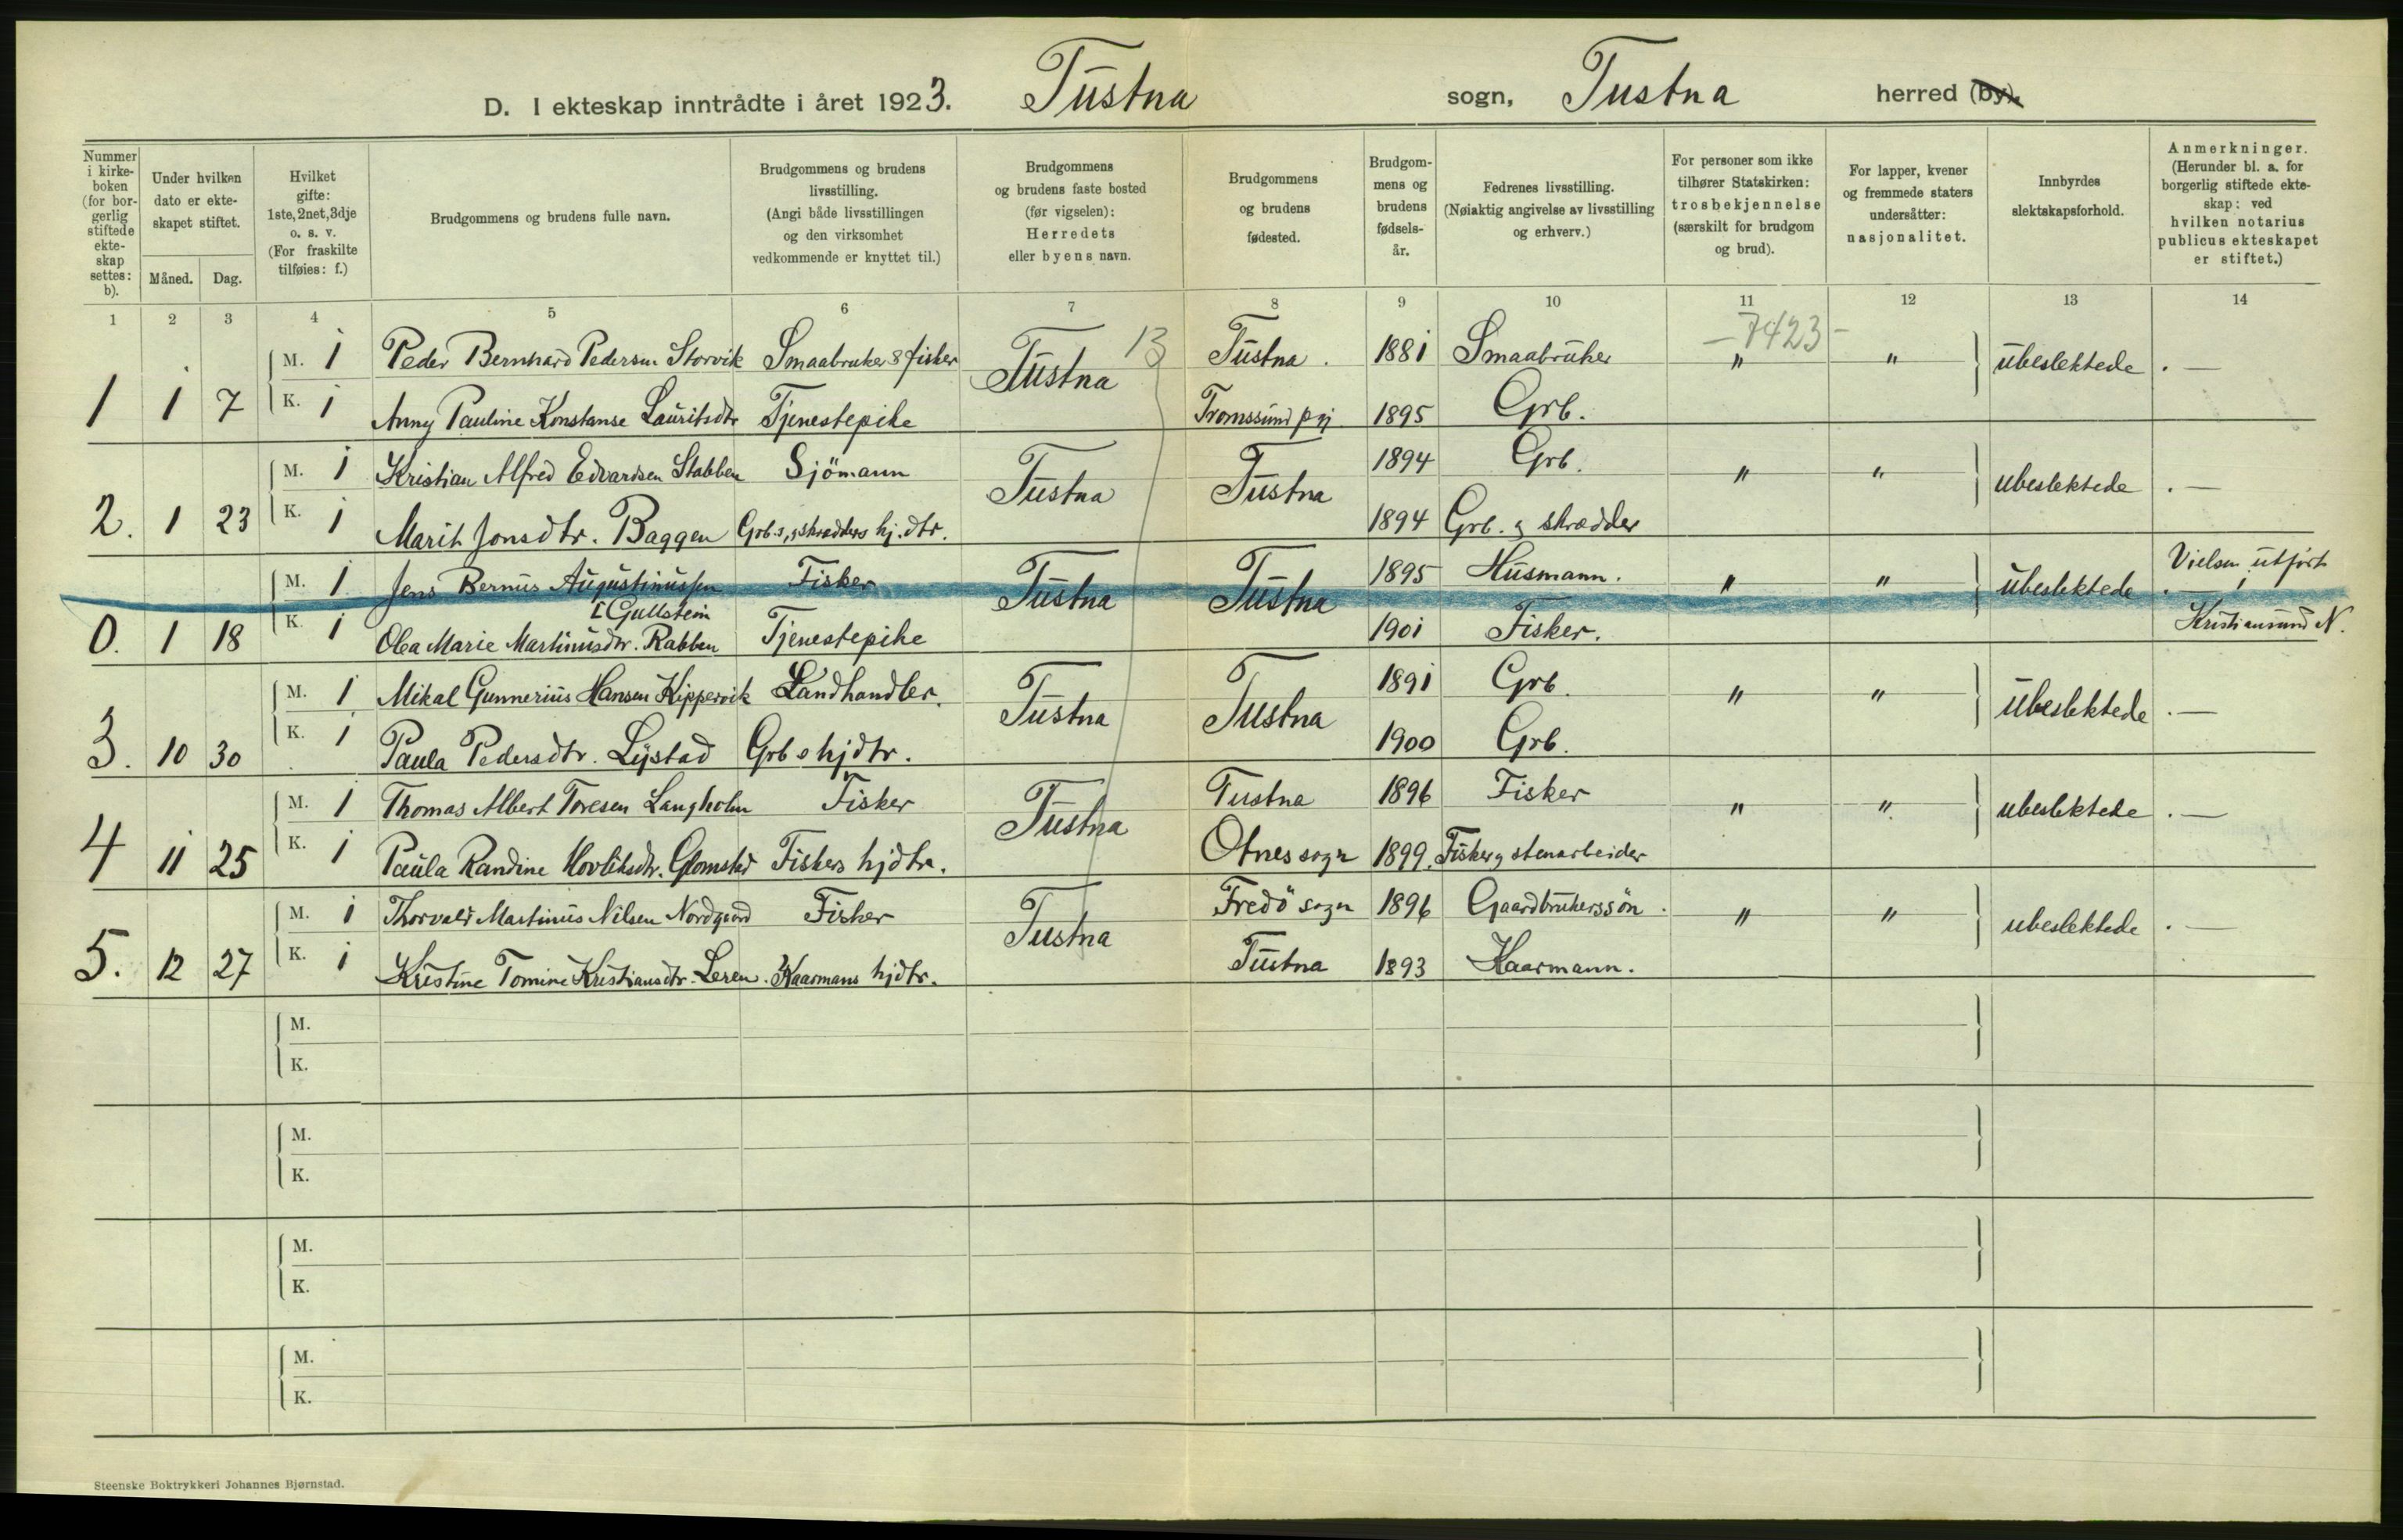 D. I ekteskap inntrådte i året 1923. Tustna sogn, Tustna herred (by).
Nummer i kirke-boken (for bor-gerlig stiftede ekte-skap settes: b).
Under hvilken dato er ekte-skapet stiftet.
Måned. Dag.
Hvilket gifte: 1ste, 2net, 3dje o. s. v. (For fraskilte tilføies: f.)
Brudgommens og brudens fulle navn.
Brudgommens og brudens livsstilling. (Angi både livsstillingen og den virksomhet vedkommende er knyttet til.)
Brudgommens og brudens faste bosted (før vigselen): Herredets eller byens navn.
Brudgommens og brudens fødested.
Brudgom-mens og brudens fødsels-år.
Fedrenes livsstilling. (Nøiaktig angivelse av livsstilling og erhverv.)
For personer som ikke tilhører Statskirken: trosbekjennelse (særskilt for brudgom og brud).
For lapper, kvener og fremmede staters undersåtter: nasjonalitet.
Innbyrdes slektskapsforhold.
Anmerkninger. (Herunder bl. a. for borgerlig stiftede ekte-skap: ved hvilken notarius publicus ekteskapet er stiftet.)
1 2 3 4 5 6 7 8 9 10 11 12 13 14
13 — 7423 —
M. 1 Peder Bernhard Pedersen Storvik Smaabruker & fisker Tustna Tustna. 1881 Smaabruker " " ubeslektede . —
1 1 7 K. 1 Anny Pauline Konstanse Lauritsdtr Tjenestepike Tromssund pgj. 1895 Grb.
M. 1 Kristian Alfred Edvardsen Stabben Sjömann Tustna Tustna 1894 Grb. " " ubeslektede . —
2. 1 23 K. 1 Marit Jonsdtr. Baggen Grb.s, g skredders hj.dtr. 1894 Grb. g skrædder
M. 1 Jens Bernus Augustinussen Fisker Tustna Tustna 1895 Husmann. " " ubeslektede . — Vielsen utfört i
[Gullstein
0. 1 18 K. 1 Olea Marie Martinusdtr. Rabben Tjenestepike 1901 Fisker. Kristiansund N.
M. 1 Mikal Gunnerius Hansen Kippervik Landhandler. Tustna Tustna 1891 Grb. " " Ubeslektede . —
3. 10 30 K. 1 Paula Pedersdtr. Lystad Grb s hjdtr. 1900 Grb.
M. 1 Thomas Albert Toresen Langholm Fisker Tustna Tustna 1896 Fisker " " ubeslektede . —
4 11 25 K. 1 Paula Randine Hovliksdtr. Glomstad Fiskers hjdtr. Otnes sogn 1899. Fisker g stenarbeider
M. 1 Thorvald Martinus Nilsen Nordgaard Fisker Tustna Fredö sogn 1896 Gaardbrukerssön. " " ubeslektede . —
5. 12 27 K. 1 Kristine Tomine Kristiansdtr. Leren. Kaarmans hjdtr. Tustna 1893 Kaarmann.
M.
K.
M.
K.
M.
K.
M.
K.
Steenske Boktrykkeri Johannes Bjørnstad.